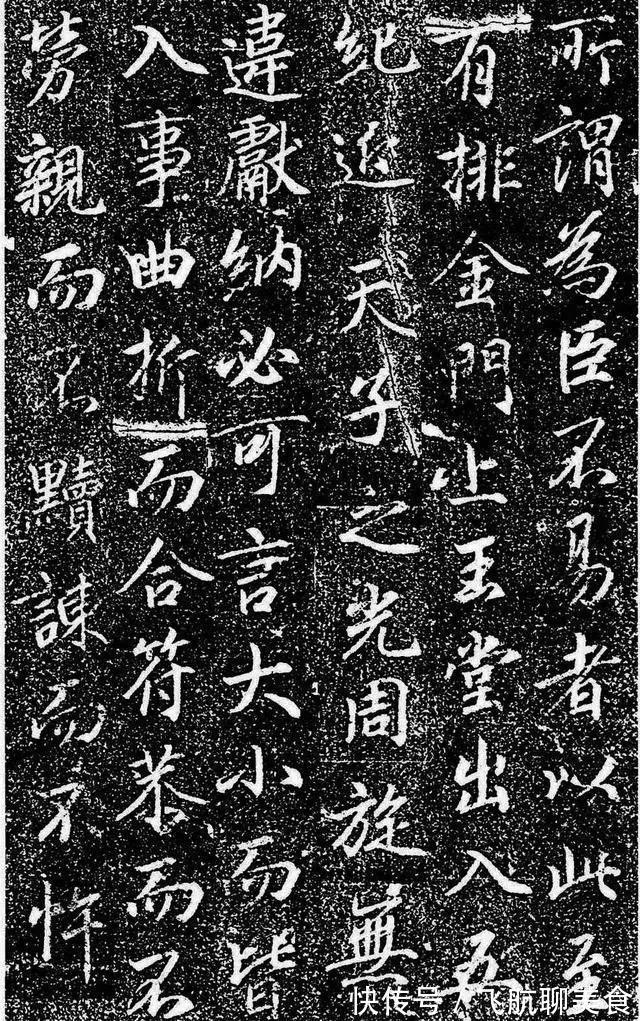 所謂為臣不易者以此至
有排金門上玉堂出入五
紀近天子之光周旋無
違獻納必可言大小而皆
入事曲折而合符恭而不
勞親而不黷諫而不忤
快传号 / 飞航聊美食